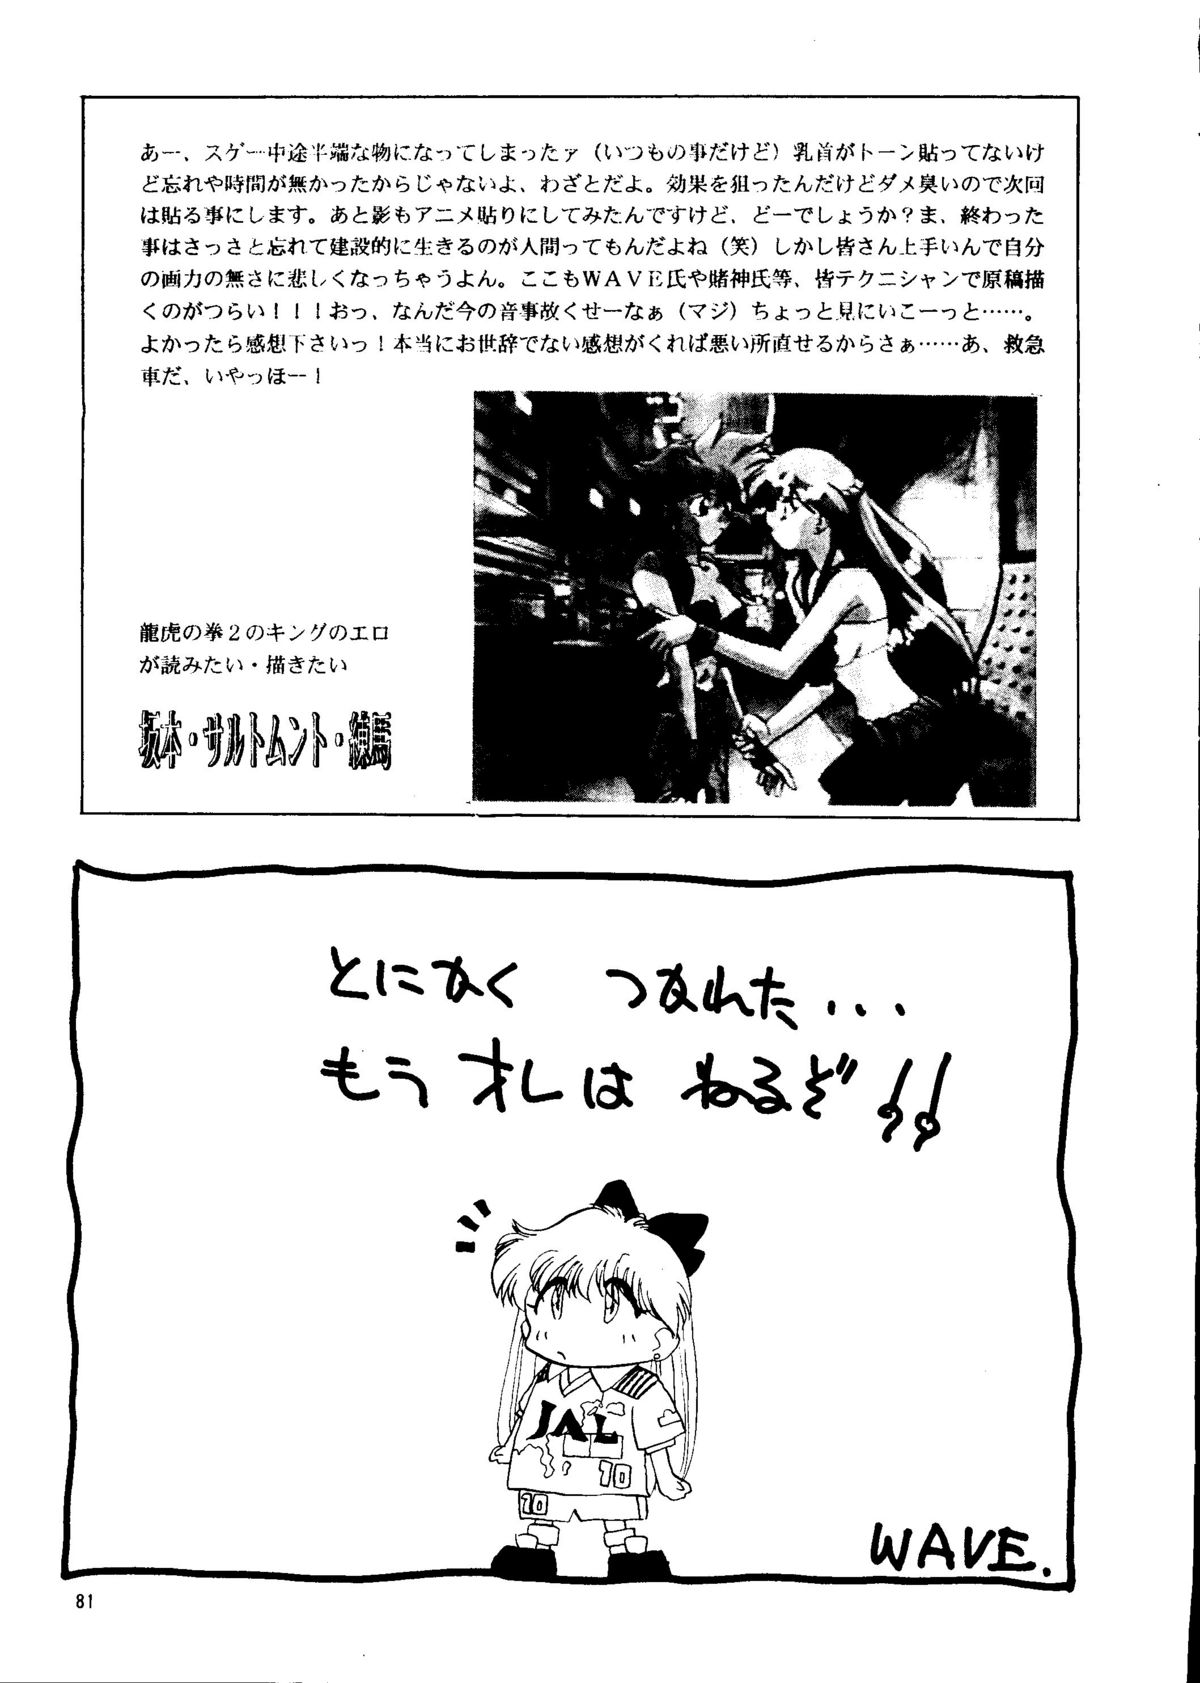 あー、スゲー中途半端な物になってしまったァ（いつもの事だけど）乳首がトーン貼ってないけ
ど忘れや時間が無かったからじゃないよ、わざとだよ。効果を狙ったんだけどダメ臭いので次回
は貼る事にします。あと影もアニメ貼りにしてみたんですけど、どーでしょうか？ま、終わった
事はさっさと忘れて建設的に生きるのが人間ってもんだよね（笑）しかし皆さん上手いんで自分
の画力の無さに悲しくなっちゃうよん。ここもＷＡＶＥ氏や賭神氏等、皆テクニシャンで原稿描
くのがつらい！！！おっ、なんだ今の音事故くせーなぁ（マジ）ちょっと見にいこーっと……。
よかったら感想下さいっ！本当にお世辞でない感想がくれば悪い所直せるからさぁ……あ、救急
車だ、いやっほー！
龍虎の拳２のキングのエロ
が読みたい・描きたい
坂本・サルトムント・練馬
とになく つなれた...
もう オレは ねるぞ!!
JAL
10
10
WAVE.
81